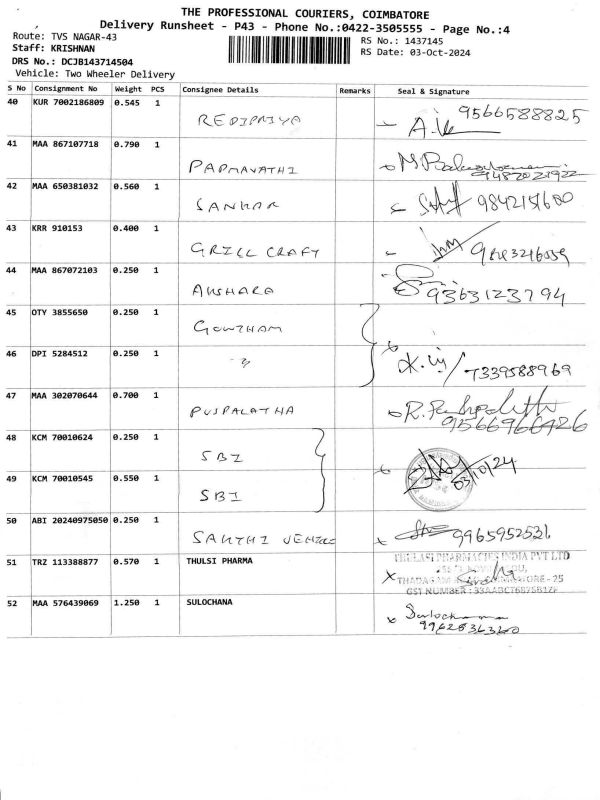 THE PROFESSIONAL COURIERS, COIMBATORE
Delivery Runsheet - P43 - Phone No.:0422-3505555 - Page No.:4
Route: TVS NAGAR-43
Staff: KRISHNAN
DRS No.: DCJB143714504
Vehicle: Two Wheeler Delivery
RS No.: 1437145
RS Date: 03-Oct-2024
S No Consignment No Weight PCS Consignee Details Remarks Seal & Signature
40 KUR 7002186809 0.545 1 REDIPRIYA 9566588825
41 MAA 867107718 0.790 1 PADMAVATHI
42 MAA 650381032 0.560 1 SANKAR
43 KRR 910153 0.400 1 GRILL CRAFT
44 MAA 867072103 0.250 1 AKSHARA 9363123794
45 OTY 3855650 0.250 1 GOWTHAM
46 DPI 5284512 0.250 1 " 7339588969
47 MAA 302070644 0.700 1 PUSPALATHA 9566966426
48 KCM 70010624 0.250 1 SBI
49 KCM 70010545 0.550 1 SBI 03/10/24
50 ABI 20240975050 0.250 1 SAKTHI 9965952531
51 TRZ 113388877 0.570 1 THULSI PHARMA THULASI PHARMACIES INDIA PVT LTD
52 MAA 576439069 1.250 1 SULOCHANA Sulochana